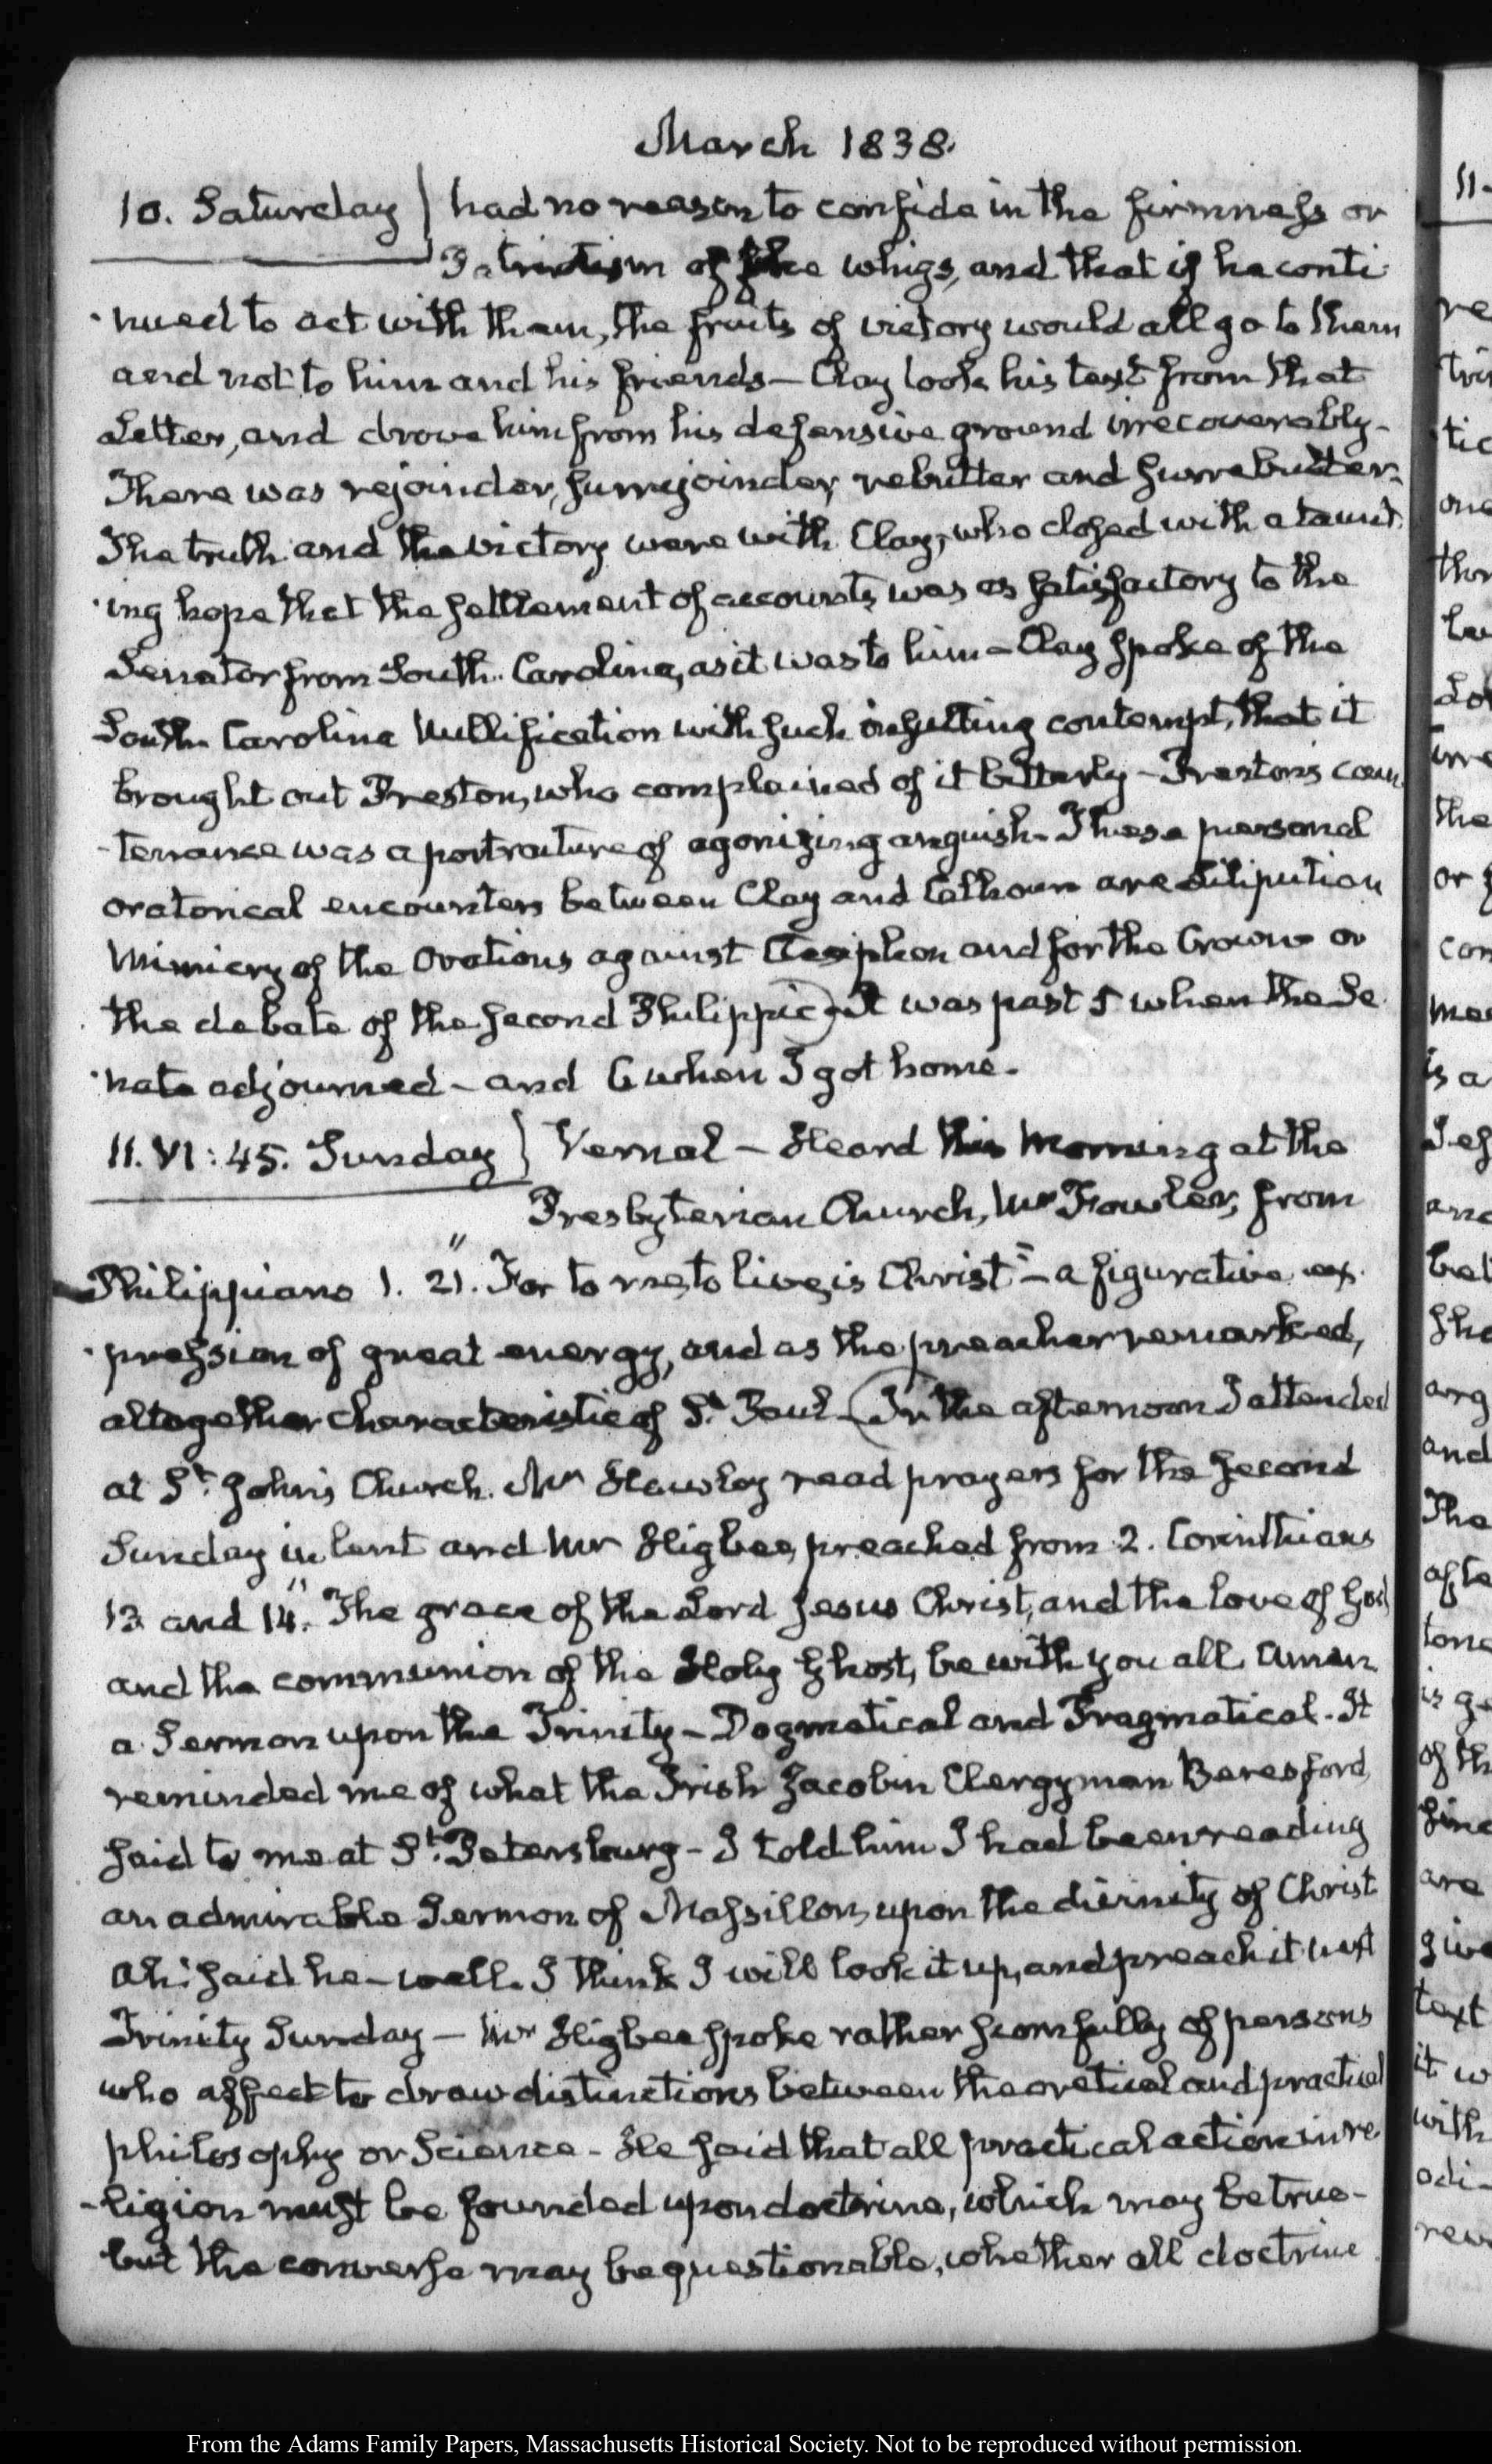 March 1838.
10. Saturday } had no reason to confide in the firmness or
Patriotism of the whigs, and that if he conti-
-nued to act with them, the fruits of victory would all go to them
and not to him and his friends — Clay took his text from that
Letter, and drove him from his defensive ground irrecoverably -
There was rejoinder, surrejoinder, rebutter and surrebutter:
The truth and the victory were with Clay, who closed with a taunt-
-ing hope that the settlement of accounts was as satisfactory to the
Senator from South Carolina, as it was to him — Clay spoke of the
South Carolina Nullification with such insulting contempt, that it
brought out Preston, who complained of it bitterly — Preston's coun
-tenance was a portraiture of agonizing anguish - These personal
oratorical encounters between Clay and Calhoun are Lilliputian
Mimicry of the Orations against Ctesiphon and for the Crown or
the debate of the second Philippic) - It was past 5 when the Se
-nate adjourned - and 6 when I got home.
11. VI: 45. Sunday } Vernal — Heard this Morning at the
Presbyterian Church, Mr Fowler, from
Philippians 1. 21. "For to me to live is Christ" — a figurative ex-
-pression of great energy, and as the preacher remarked,
altogether characteristic of St. Paul — (In the afternoon I attended
at St. John's Church. Mr Hawley read prayers for the second
Sunday in lent and Mr Higbee preached from 2. Corinthians
13 and 14. "The grace of the Lord Jesus Christ, and the love of God
and the communion of the Holy Ghost, be with you all. Amen
a Sermon upon the Trinity — Dogmatical and Pragmatical. It
reminded me of what the Irish Jacobin Clergyman Beresford,
said to me at St. Petersburg - I told him I had been reading
an admirable Sermon of Massillon, upon the divinity of Christ
Ah! said he — well. I think I will look it up, and preach it next
Trinity Sunday — Mr Higbee spoke rather scornfully of persons
who affect to draw distinctions between theoretical and practical
philosophy or Science - He said that all practical action in re
-ligion must be founded upon doctrine, which may be true -
but the converse may be questionable, whether all doctrine
From the Adams Family Papers, Massachusetts Historical Society. Not to be reproduced without permission.